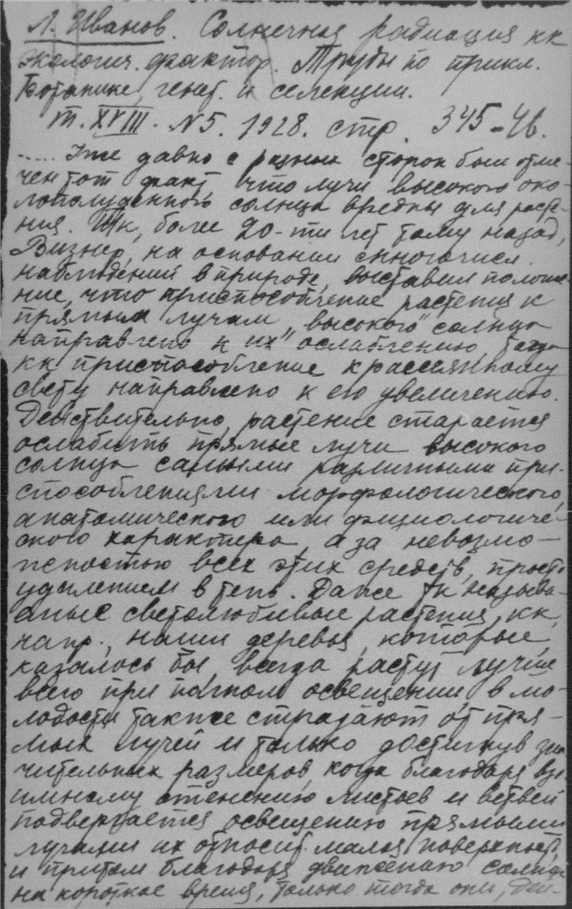 Л. Иванов. Солнечная радиация кк
экологич. фактор. Труды по прикл.
Ботанике, генет. и селекции.
т. XVIII. N5. 1928. стр. 345-46.
..... Уже давно с разных сторон был отме-
чен тот факт, что лучи высокого око-
лополуденного солнца вредны для расте-
ния. Тк, более 20-ти лет тому назад,
Визнер, на основании многочисл.
наблюдений в природе, выставил положе-
ние, что приспособление растения к
прямым лучам „высокого" солнца
направлено к их ослаблению, тогда
кк приспособление к рассеянному
свету направлено к его увеличению.
Действительно, растение старается
ослабить прямые лучи высокого
солнца самыми различными при-
способлениями морфологического,
анатомического или физиологиче-
ского характера а за невозмо-
жностью всех этих средств, просто
удалением в тень. Даже тк называ-
емые светолюбивые растения, кк,
напр., наши деревья, которые
казалось бы, всегда растут лучше
всего при полном освещении, в мо-
лодости также страдают от пря-
мых лучей и только достигнув зна-
чительных размеров, когда благодаря вза-
имному отенению листьев и ветвей
подвергается освещению прямыми
лучами их относит. малая поверхность,
и притом благодаря движению солнца
на короткое время, только тогда они,